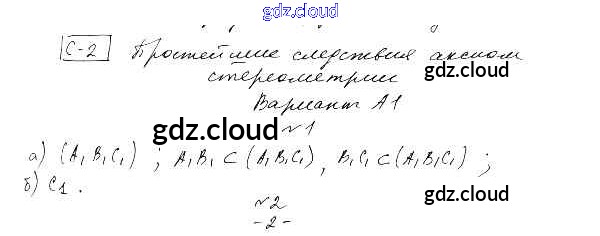 gdz.cloud
С-2 Простейшие следствия аксиом
стереометрии
gdz.cloud
Вариант А1
gdz.cloud
№1
а) (A₁B₁C₁) ; A₁B₁ ⊂ (A₁B₁C₁), B₁C₁ ⊂ (A₁B₁C₁) ;
б) C₁ .
gdz.cloud
№2
gdz.cloud
-2-